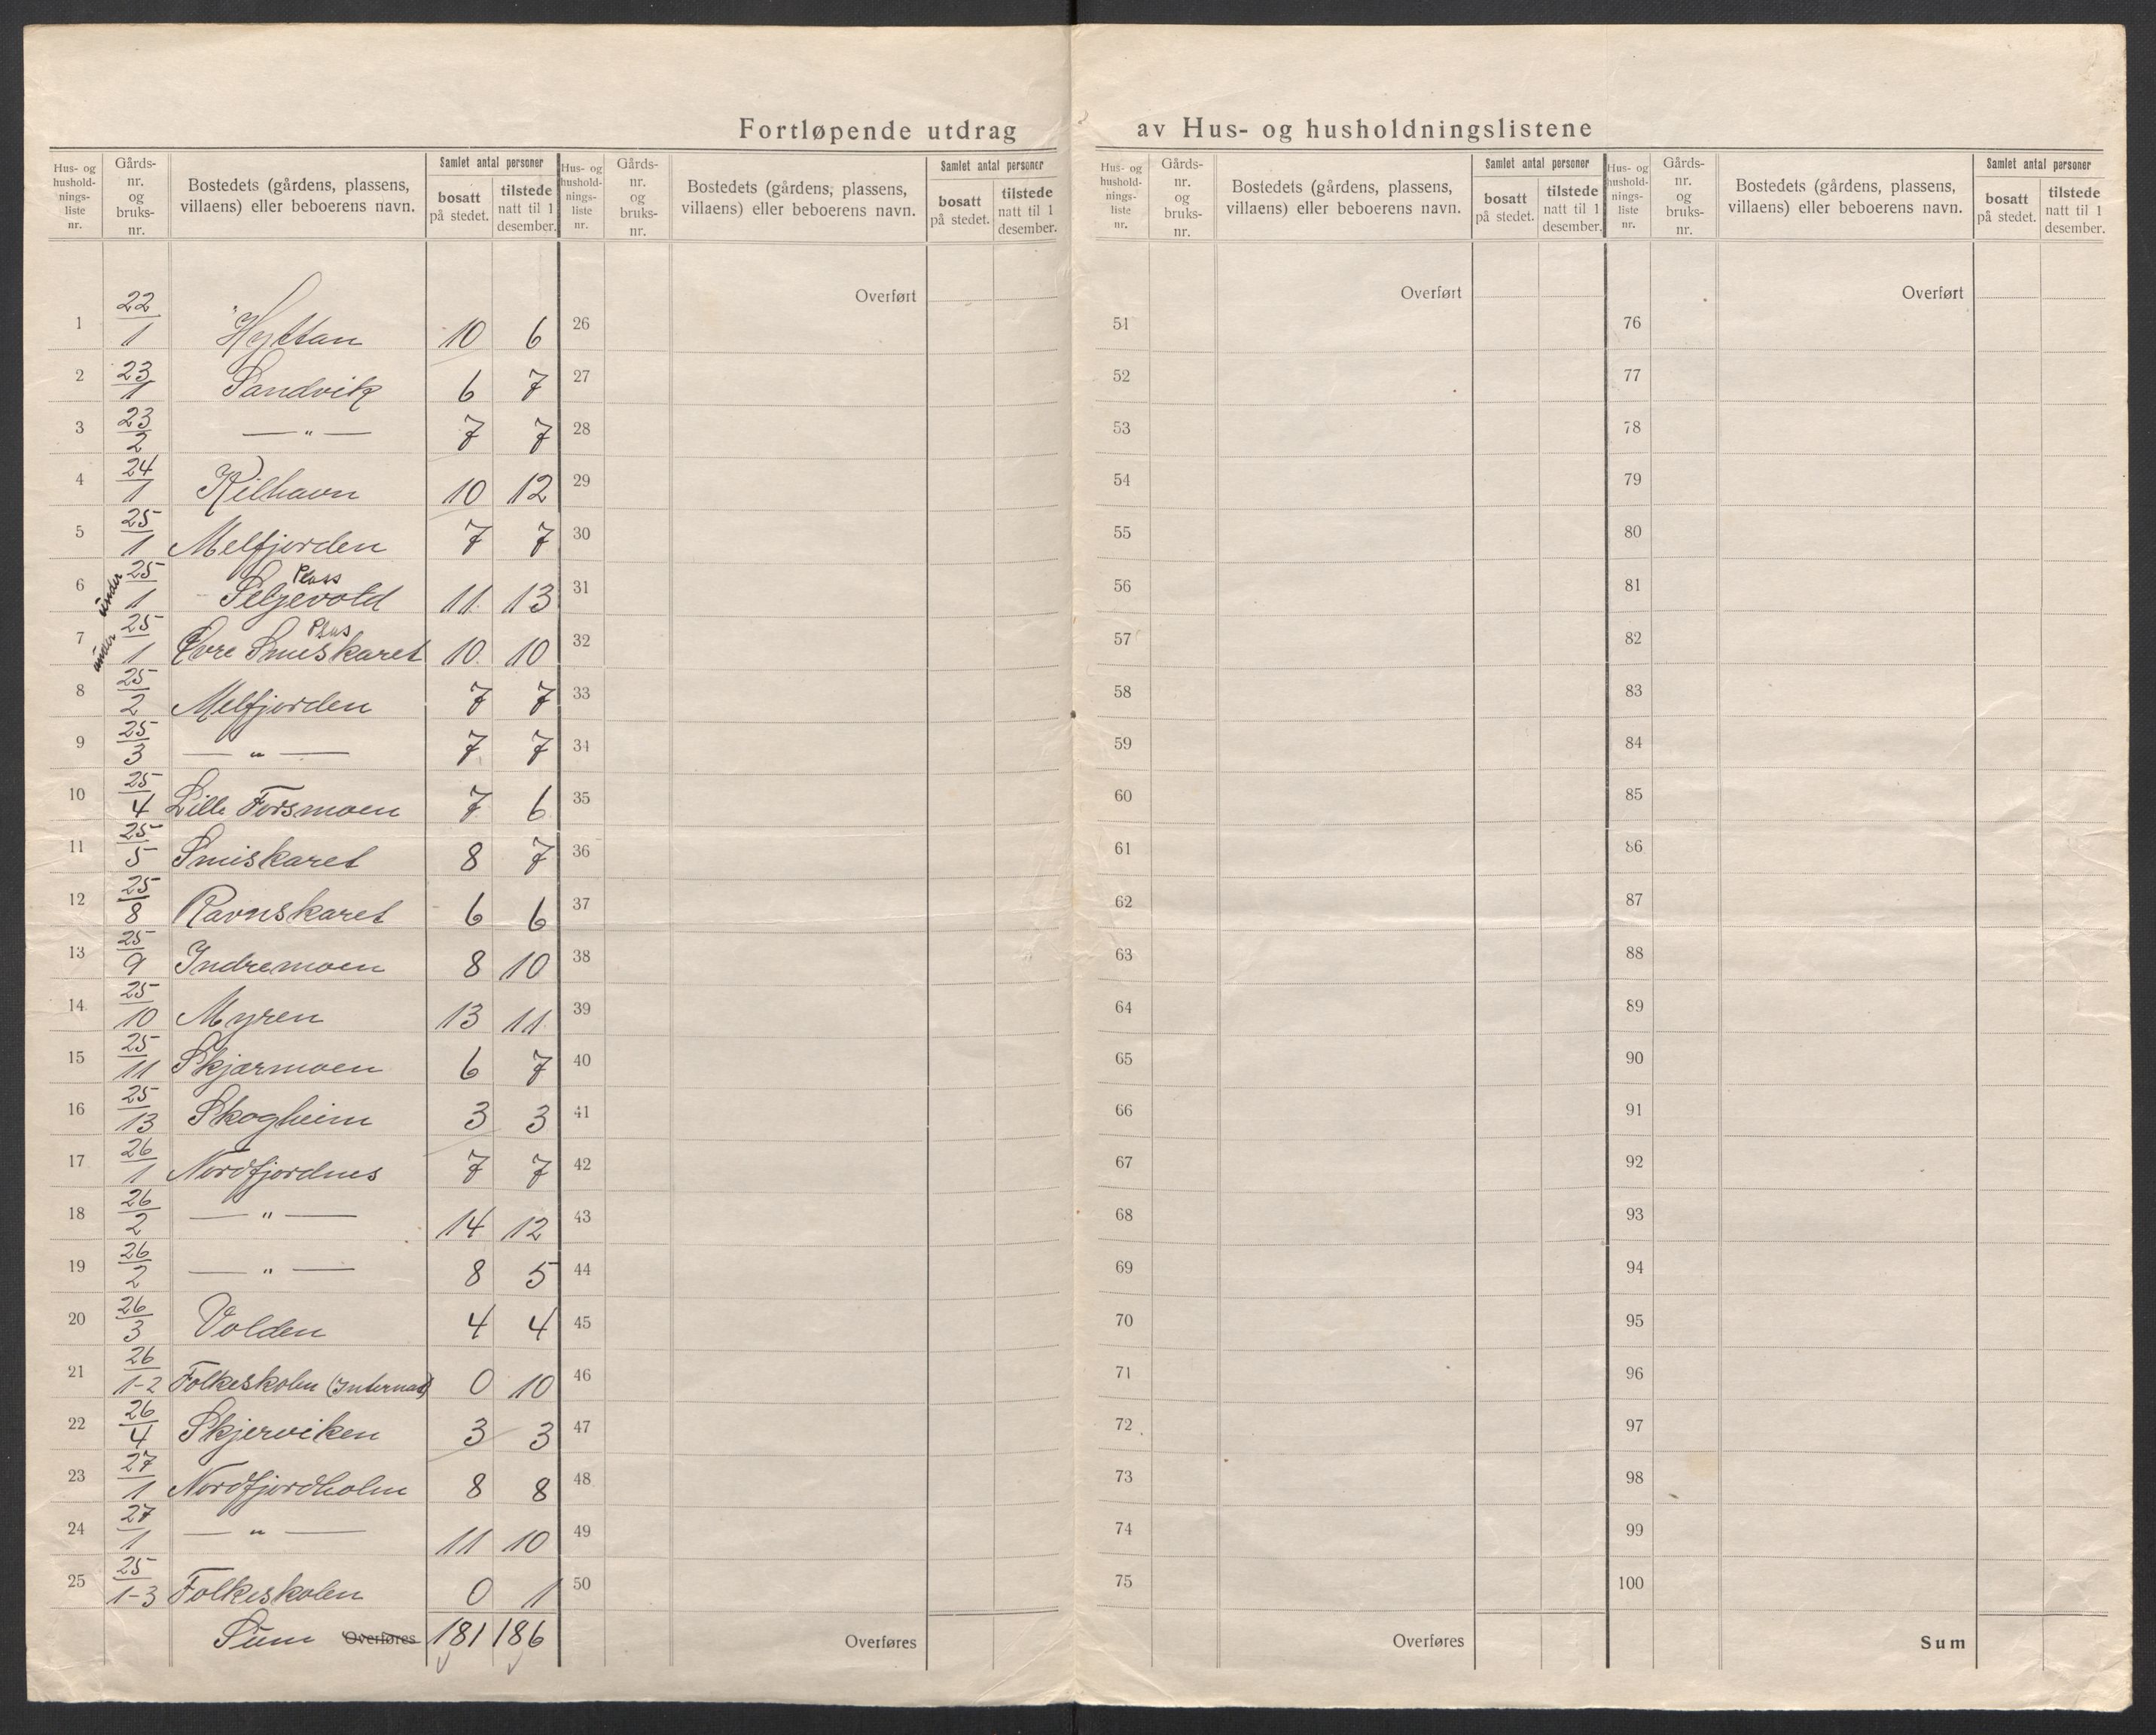 Fortløpende utdrag av Hus- og husholdningslistene
Hus- og hushold-nings-liste nr. | Gårds-nr. og bruks-nr. | Bostedets (gårdens, plassens, villaens) eller beboerens navn. | Samlet antal personer | bosatt på stedet. | tilstede natt til 1 desember.
Hus- og hushold-nings-liste nr. | Gårds-nr. og bruks-nr. | Bostedets (gårdens, plassens, villaens) eller beboerens navn. | Samlet antal personer | bosatt på stedet. | tilstede natt til 1 desember.
Hus- og hushold-nings-liste nr. | Gårds-nr. og bruks-nr. | Bostedets (gårdens, plassens, villaens) eller beboerens navn. | Samlet antal personer | bosatt på stedet. | tilstede natt til 1 desember.
Hus- og hushold-nings-liste nr. | Gårds-nr. og bruks-nr. | Bostedets (gårdens, plassens, villaens) eller beboerens navn. | Samlet antal personer | bosatt på stedet. | tilstede natt til 1 desember.
1 22/1 Hyttan 10 6
2 23/1 Sandvik 6 7
3 23/2 — " — 7 7
4 24/1 Kilhavn 10 12
5 25/1 Melfjorden 7 7
6 under 25/1 Seljevold Plass 11 13
7 under 25/1 Øvre Smiskaret Plas 10 10
8 25/2 Melfjorden 7 7
9 25/3 — " — 7 7
10 25/4 Lille Forsmoen 7 6
11 25/5 Smiskaret 8 7
12 25/8 Ravnskaret 6 6
13 25/9 Indremoen 8 10
14 25/10 Myren 13 11
15 25/11 Skjærmoen 6 7
16 25/13 Skogheim 3 3
17 26/1 Nordfjordnes 7 7
18 26/2 — " — 14 12
19 26/2 — " — 8 5
20 26/3 Volden 4 4
21 26/1-2 Folkeskolen (Internat) 0 10
22 26/4 Skjerviken 3 3
23 27/1 Nordfjordholm 8 8
24 27/1 — " — 11 10
25 25/1-3 Folkeskolen 0 1
Sum Overføres 181 186
Overført
26
27
28
29
30
31
32
33
34
35
36
37
38
39
40
41
42
43
44
45
46
47
48
49
50
Overføres
Overført
51
52
53
54
55
56
57
58
59
60
61
62
63
64
65
66
67
68
69
70
71
72
73
74
75
Overføres
Overført
76
77
78
79
80
81
82
83
84
85
86
87
88
89
90
91
92
93
94
95
96
97
98
99
100
Sum